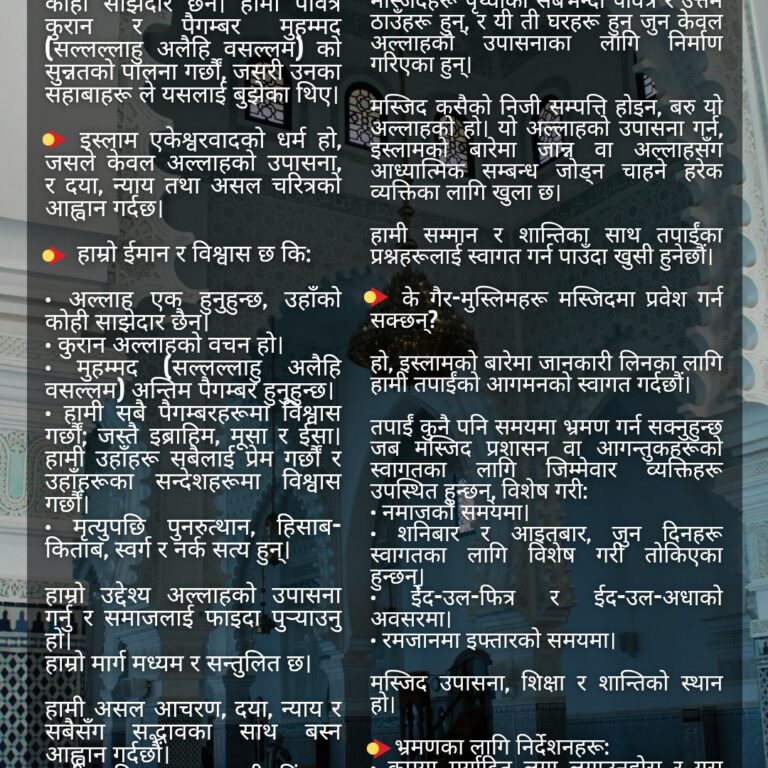 कोही साझेदार छैन। हामी पवित्र
कुरान र पैगम्बर मुहम्मद
(सल्लल्लाहु अलैहि वसल्लम) को
सुन्नतको पालना गर्छौं, जसरी उनका
सहाबाहरू ले यसलाई बुझेका थिए।
इस्लाम एकेश्वरवादको धर्म हो,
जसले केवल अल्लाहको उपासना,
र दया, न्याय तथा असल चरित्रको
आह्वान गर्दछ।
हाम्रो ईमान र विश्वास छ कि:
• अल्लाह एक हुनुहुन्छ, उहाँको
कोही साझेदार छैन।
• कुरान अल्लाहको वचन हो।
• मुहम्मद (सल्लल्लाहु अलैहि
वसल्लम) अन्तिम पैगम्बर हुनुहुन्छ।
• हामी सबै पैगम्बरहरूमा विश्वास
गर्छौं; जस्तै इब्राहिम, मूसा र ईसा।
हामी उहाँहरू सबैलाई प्रेम गर्छौं र
उहाँहरूका सन्देशहरूमा विश्वास
गर्छौं।
• मृत्युपछि पुनरुत्थान, हिसाब-
किताब, स्वर्ग र नर्क सत्य हुन्।
हाम्रो उद्देश्य अल्लाहको उपासना
गर्नु र समाजलाई फाइदा पुऱ्याउनु
हो।
हाम्रो मार्ग मध्यम र सन्तुलित छ।
हामी असल आचरण, दया, न्याय र
सबैसँग सद्भावका साथ बस्न
आह्वान गर्दछौं।
मस्जिदहरू पृथ्वीका सबैभन्दा पवित्र र उत्तम
ठाउँहरू हुन्, र यी ती घरहरू हुन् जुन केवल
अल्लाहको उपासनाका लागि निर्माण
गरिएका हुन्।
मस्जिद कसैको निजी सम्पत्ति होइन, बरु यो
अल्लाहको हो। यो अल्लाहको उपासना गर्न,
इस्लामको बारेमा जान्न वा अल्लाहसँग
आध्यात्मिक सम्बन्ध जोड्न चाहने हरेक
व्यक्तिका लागि खुला छ।
हामी सम्मान र शान्तिका साथ तपाईंका
प्रश्नहरूलाई स्वागत गर्न पाउँदा खुसी हुनेछौं।
के गैर-मुस्लिमहरू मस्जिदमा प्रवेश गर्न
सक्छन्?
हो, इस्लामको बारेमा जानकारी लिनका लागि
हामी तपाईंको आगमनको स्वागत गर्दछौं।
तपाईं कुनै पनि समयमा भ्रमण गर्न सक्नुहुन्छ
जब मस्जिद प्रशासन वा आगन्तुकहरूको
स्वागतका लागि जिम्मेवार व्यक्तिहरू
उपस्थित हुन्छन्, विशेष गरी:
• नमाजको समयमा।
• शनिबार र आइतबार, जुन दिनहरू
स्वागतका लागि विशेष गरी तोकिएका
हुन्छन्।
• ईद-उल-फित्र र ईद-उल-अधाको
अवसरमा।
• रमजानमा इफ्तारको समयमा।
मस्जिद उपासना, शिक्षा र शान्तिको स्थान
हो।
भ्रमणका लागि निर्देशनहरू: